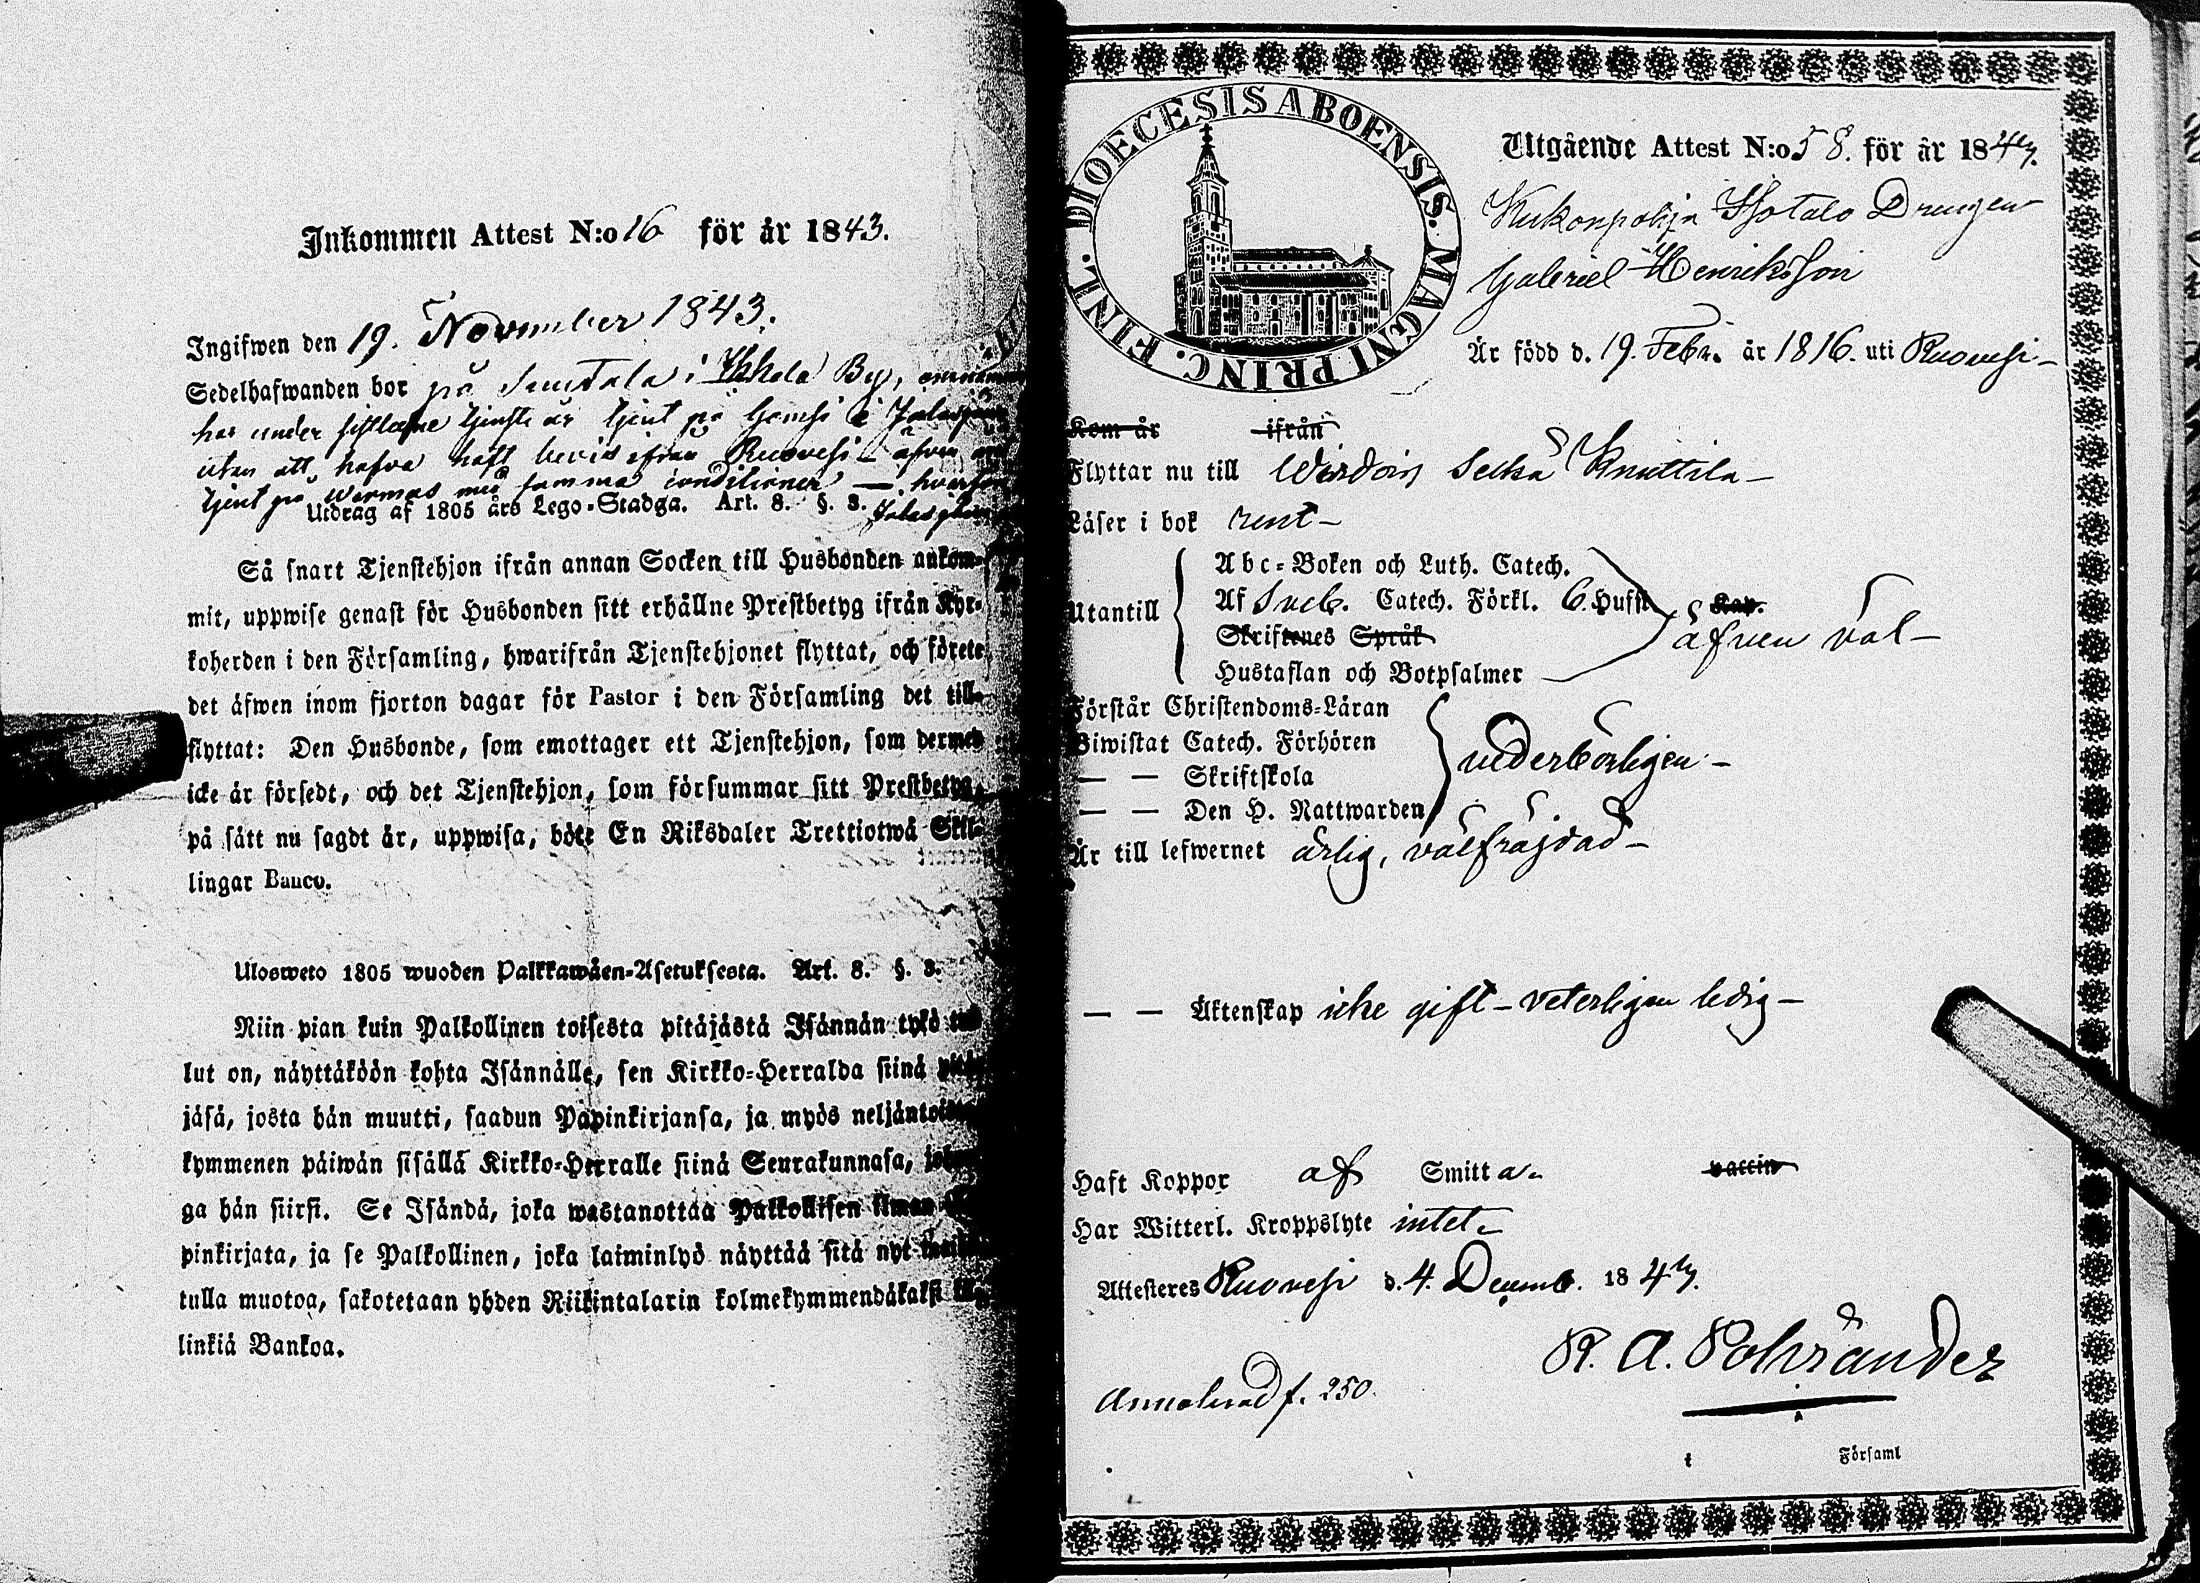 Inkommen Attest N:o 16 för år 1843.
Ingifwen den 19. November 1843.
Sedelhafwanden bor på i By,
har under tjenste år tjent på i
utan att hafva haft bevis ifrån Ruovesi – äfven
tjent på med samma conditioner —
Utdrag af 1805 års Lego-Stadga. Art. 8. §. 3.
Så snart Tjenstehjon ifrån annan Socken till Husbonden ankom-
mit, uppwise genast för Husbonden sitt erhållne Prestbetyg ifrån Kyr-
koherden i den Församling, hwarifrån Tjenstehjonet flyttat, och förete
det äfwen inom fjorton dagar för Pastor i den Församling det till-
flyttat: Den Husbonde, som emottager ett Tjenstehjon, som dermed
icke är försedt, och det Tjenstehjon, som försummar sitt Prestbetyg,
på sätt nu sagdt är, uppwisa, böte En Riksdaler Trettiotwå Skil-
lingar Banco.
Ulosweto 1805 wuoden Palkkawäen-Asetuksesta. Art. 8. §. 3.
Niin pian kuin Palkollinen toisesta pitäjästä Isännän tykö tul-
lut on, näyttäköön kohta Isännälle, sen Kirkko-Herralda siinä pitä-
jäsä, josta hän muutti, saadun Papinkirjansa, ja myös neljäntoista
kymmenen päiwän sisällä Kirkko-Herralle siinä Seurakunnasa, johon-
ga hän siirsi. Se Isändä, joka wastanottaa Palkollisen ilman
pinkirjata, ja se Palkollinen, joka laiminlyö näyttää sitä nyt
tulla muotoa, sakotetaan yhden Riikintalarin kolmekymmendäkaksi kil-
linkiä Bankoa.
DIOECESIS ABOENSIS. MAGNI PRINC. FINL.
Utgående Attest N:o 58. för år 184
Kukonpohja Drengen
Gabriel Henriksson
Är född d. 19. Febr. år 1816. uti Ruovesi –
Kom år ifrån
Flyttar nu till Wirdois –
Läser i bok rent –
Utantill
Abc-Boken och Luth. Catech.
Af Sveb. Catech. Förkl. 6. Hufst.
Kap.
Skriftenes Språk
Hustaflan och Botpsalmer
äfven väl –
Förstår Christendoms-Läran
Biwistat Catech. Förhören
— — Skriftskola
— — Den H. Nattwarden
vederbörligen –
Är till lefwernet ärlig, välfräjdad –
— — Äktenskap icke gift – veterligen ledig –
Haft Koppor af Smitta. vaccin
Har Witterl. Kroppslyte intet.
Attesteres Ruovesi d. 4. Decemb. 184
R. A. Polviander
f. 250.
i Församl